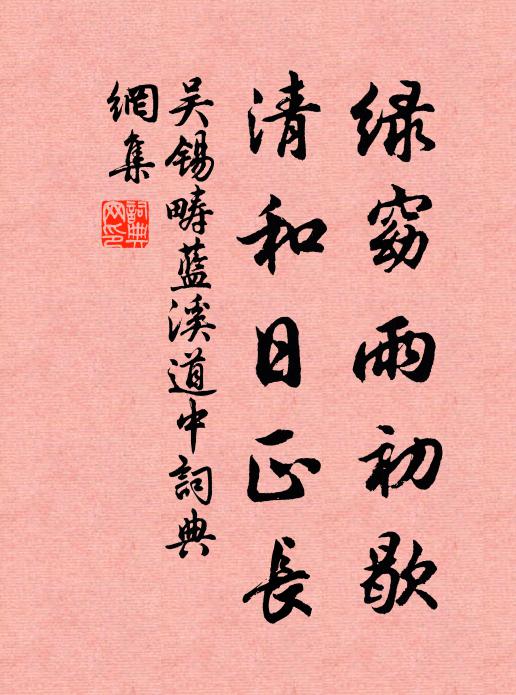 绿窈雨初歇
清和日正長
吴锡畴藍溪道中詞典
網集
詞典網印